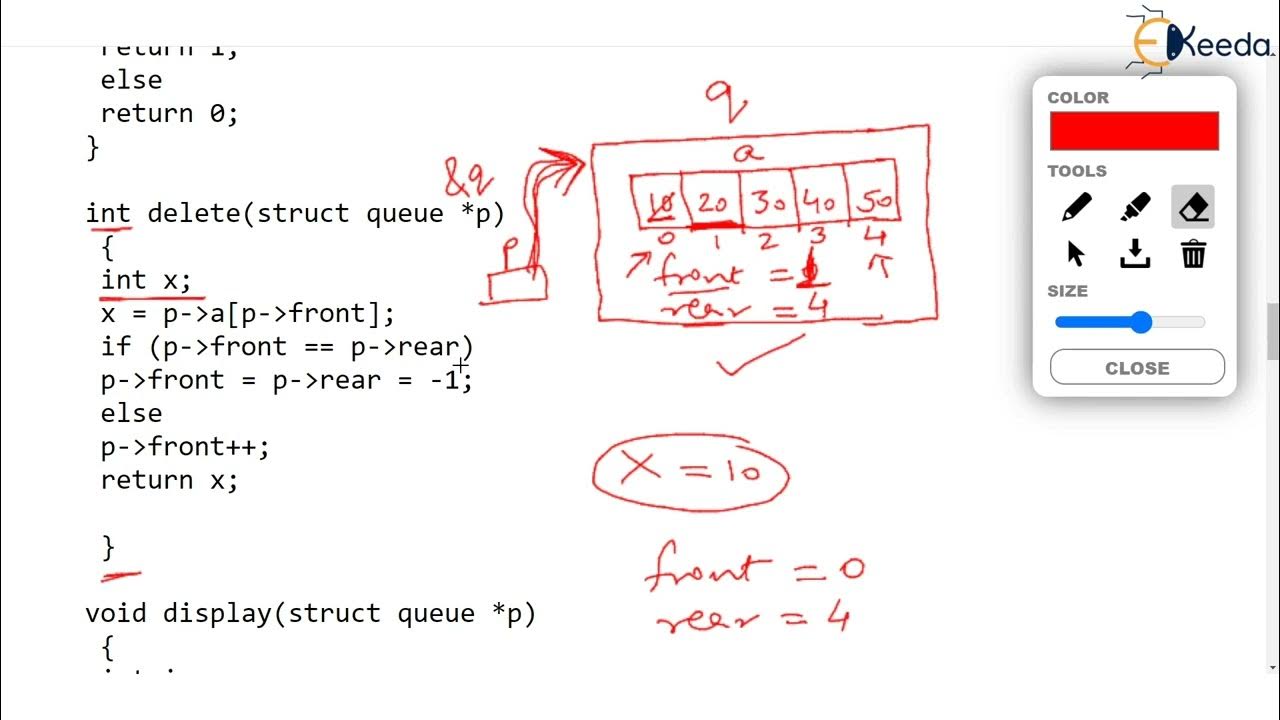 return 1;
else
return 0;
}
int delete(struct queue *p)
{
int x;
x = p->a[p->front];
if (p->front == p->rear)
p->front = p->rear = -1;
else
p->front++;
return x;
}
void display(struct queue *p)
{
q
a
&q
p
10 20 30 40 50
0 1 2 3 4
front = 1
rear = 4
X = 10
front = 0
rear = 4
EKeeda
COLOR
TOOLS
SIZE
CLOSE